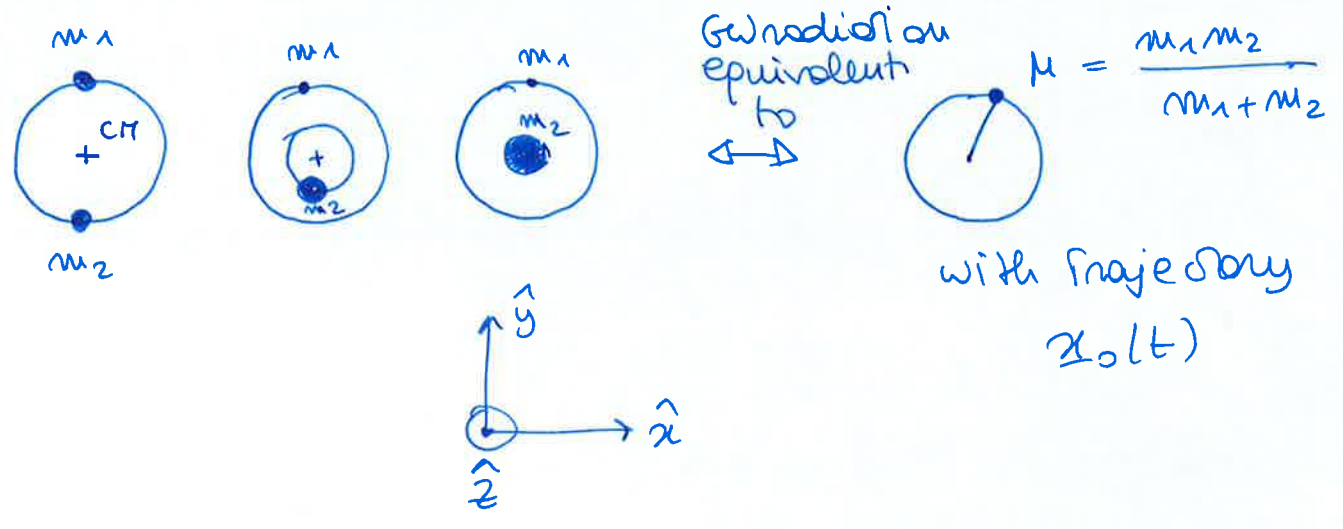 m1
CM
m2
m1
m2
m1
m2
GW radiation
equivalent
to
⟷
μ = m1 m2 / m1 + m2
with trajectory
x₀(t)
ŷ
x̂
ẑ